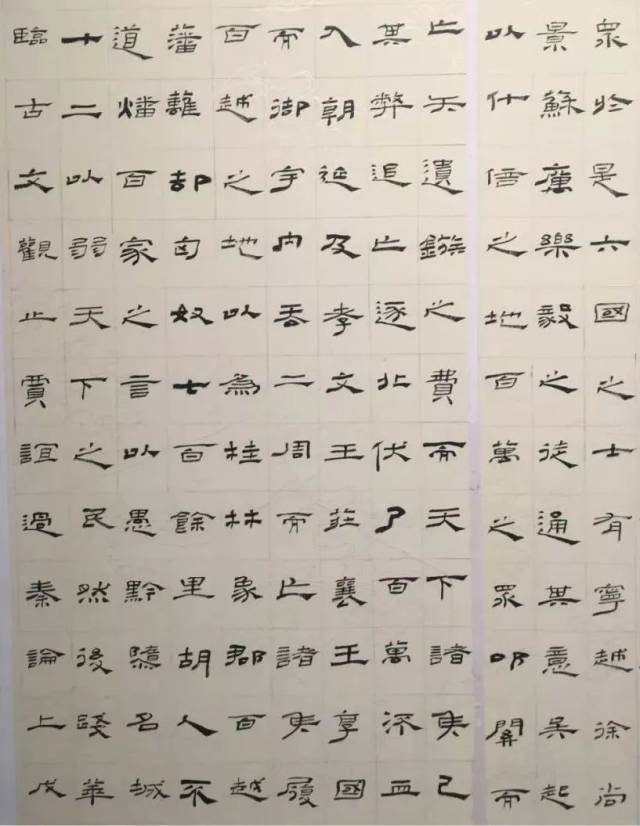 眾於是六國之士有寧越徐尚
景蘇厲樂毅之徒通其意吳起
以什倍之地百萬之眾叩關而
亡矢遺鏃之費而天下諸侯已
其弊追亡逐北伏尸百萬流血
入朝延及孝文王莊襄王享國
而御宇內吞二周而亡諸侯履
百越之地以為桂林象郡百越
藩籬卻匈奴七百餘里胡人不
道燔百家之言以愚黔隳名城
十二以弱天下之民然後踐華
臨古文觀止賈誼過秦論上戊